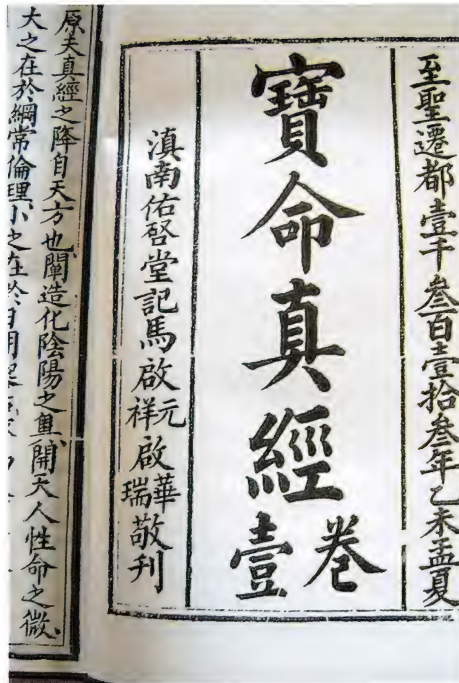 至聖遷都壹千叁百壹拾叁年乙未孟夏
寶命真經
卷壹
滇南佑啓堂記馬啟元祥啟華瑞敬刊
原天真經之降自天方也闡造化陰陽之奧開大人性命之微
大之在於綱常倫理小之在於日用